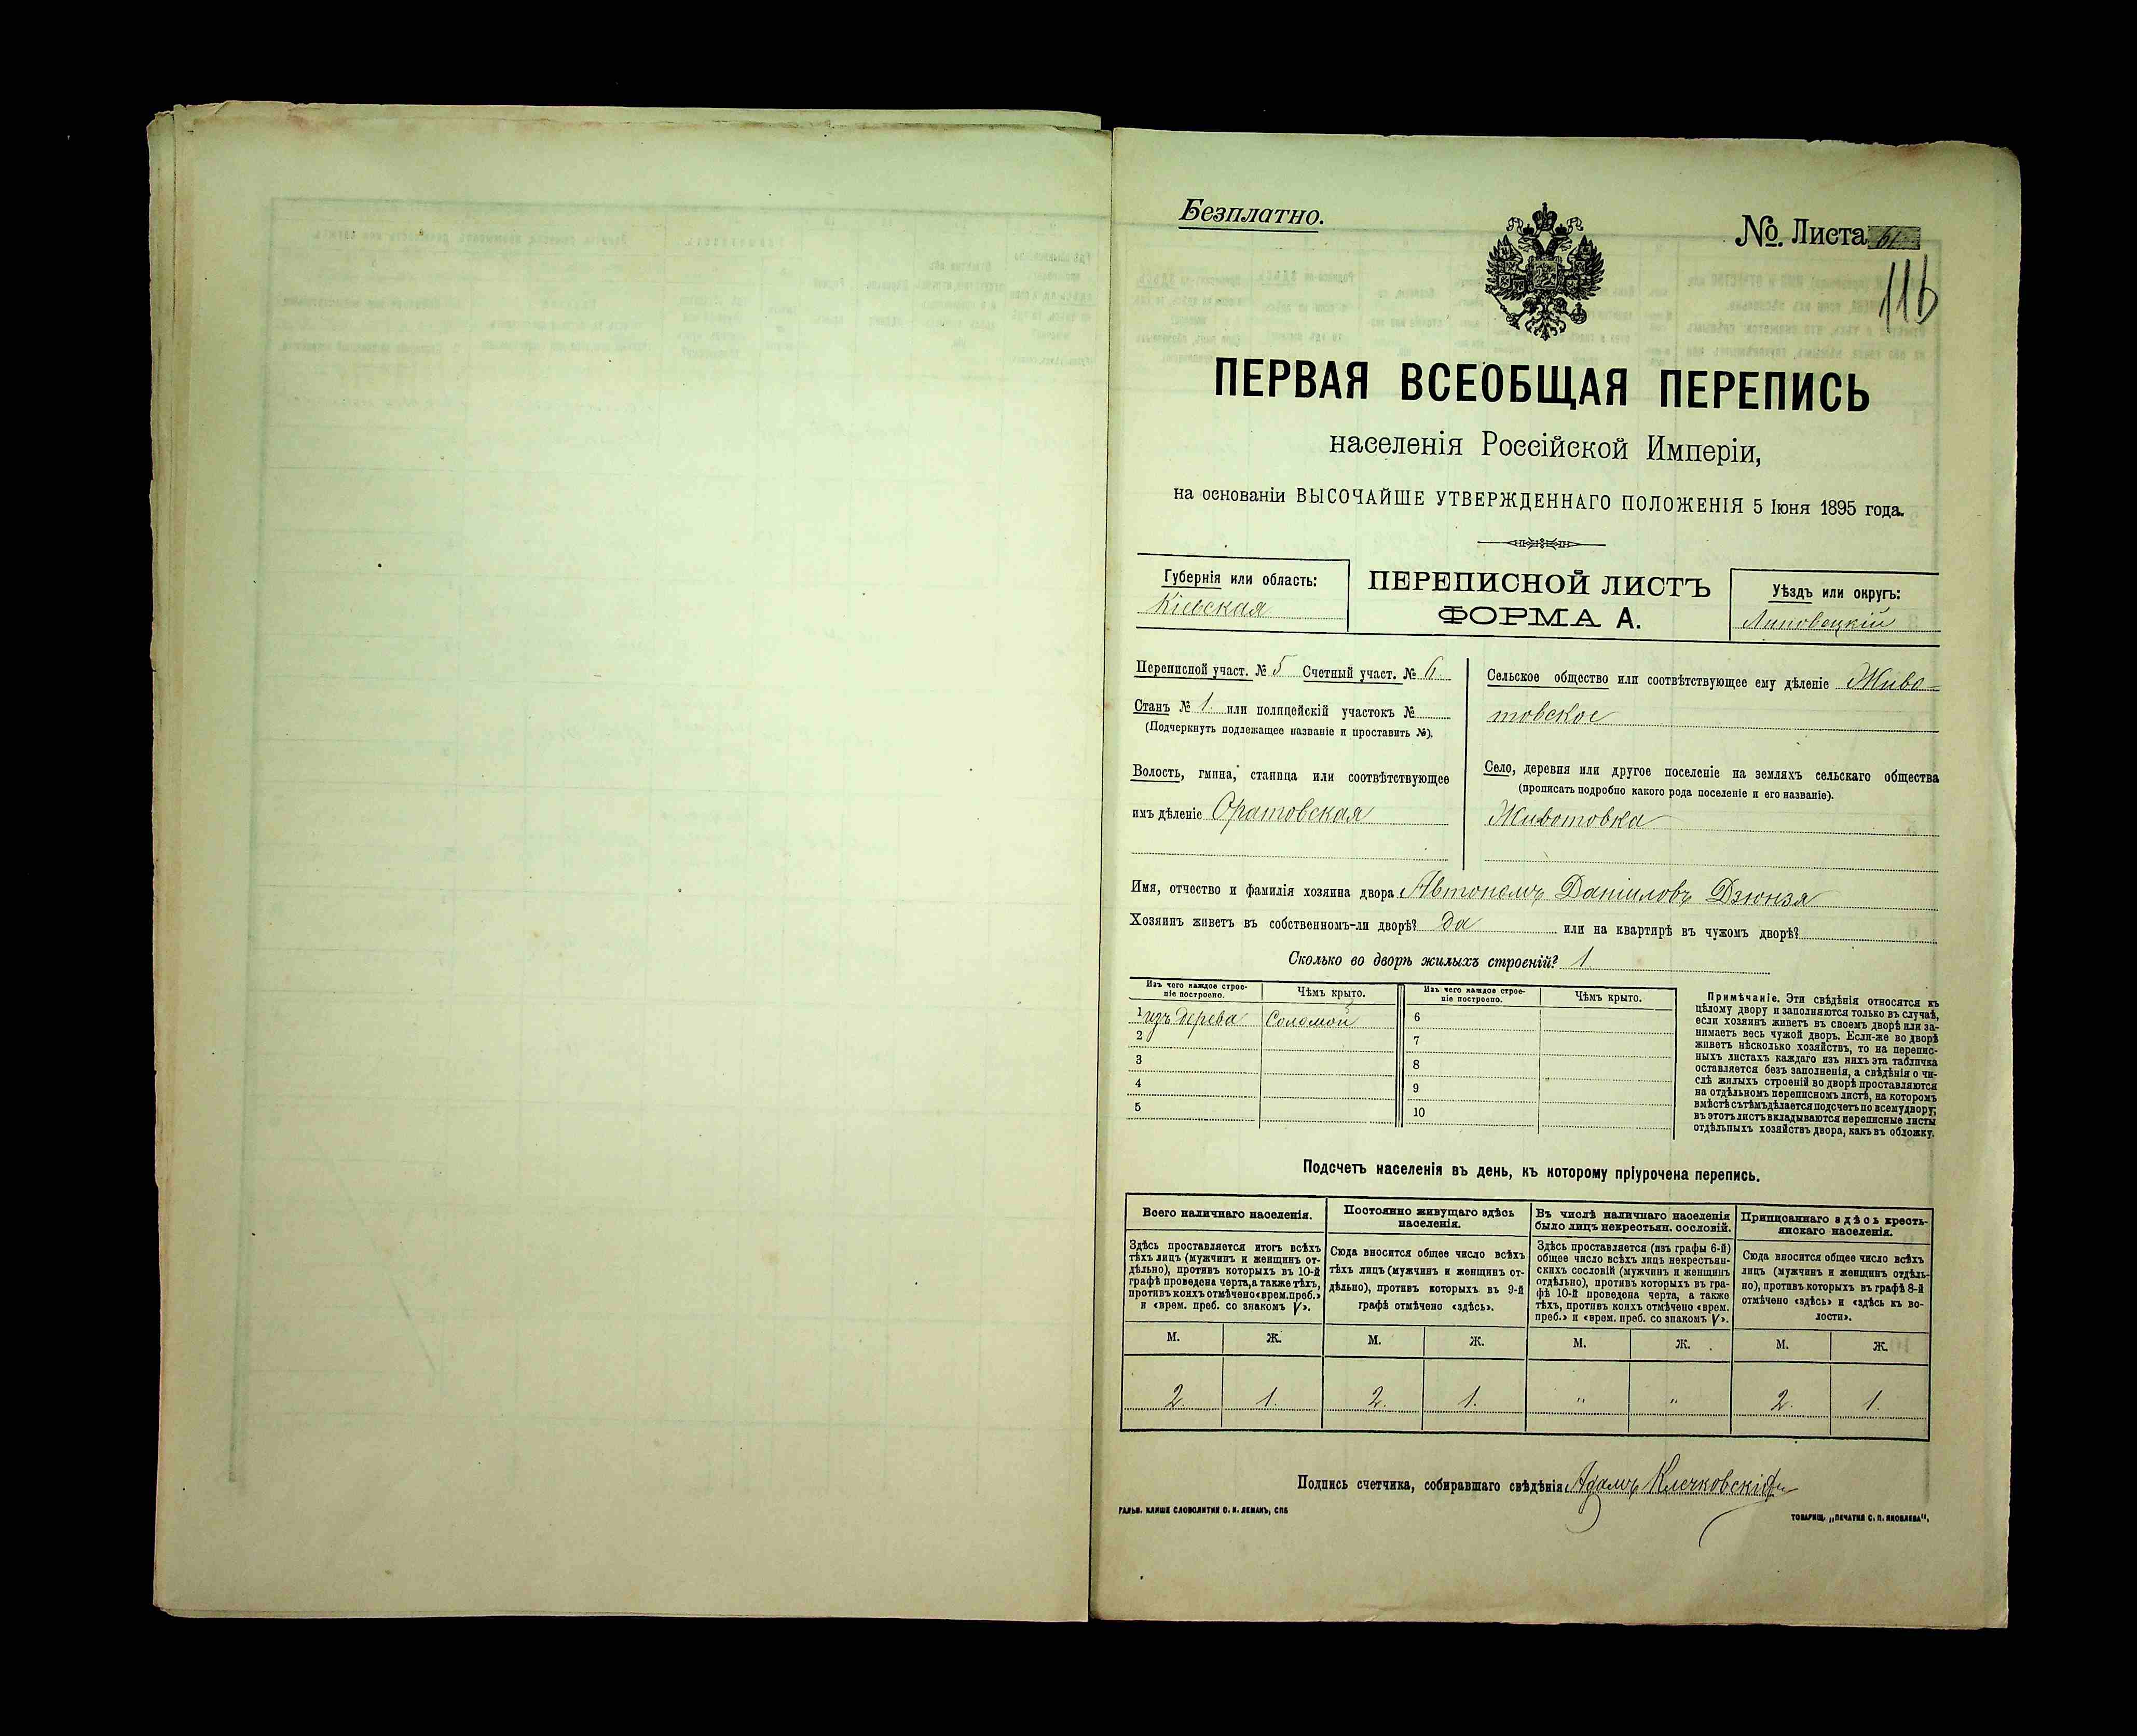 Безплатно.
№. Листа 61
116
ПЕРВАЯ ВСЕОБЩАЯ ПЕРЕПИСЬ
населенія Россійской Имперіи,
на основаніи ВЫСОЧАЙШЕ УТВЕРЖДЕННАГО ПОЛОЖЕНІЯ 5 Іюня 1895 года.
Губернія или область:
Кіевская
ПЕРЕПИСНОЙ ЛИСТЪ
ФОРМА А.
Уѣздъ или округъ:
Липовецкій
Переписной участ. № 5 Счетный участ. № 6
Станъ № 1. или полицейскій участокъ №
(Подчеркнуть подлежащее названіе и проставить №).
Волость, гмина, станица или соотвѣтствующее
имъ дѣленіе Оратовская
Сельское общество или соотвѣтствующее ему дѣленіе Живо-
товское
Село, деревня или другое поселеніе на земляхъ сельскаго общества
(прописать подробно какого рода поселеніе и его названіе).
Животовка
Имя, отчество и фамилія хозяина двора Автономъ Даниловъ Дзюнзя
Хозяинъ живетъ въ собственномъ-ли дворѣ? Да или на квартирѣ въ чужомъ дворѣ?
Сколько во дворѣ жилыхъ строеній? 1
Изъ чего каждое строе-
ніе построено.
Чѣмъ крыто.
Изъ чего каждое строе-
ніе построено.
Чѣмъ крыто.
1 изъ дерева Соломой 6
2 7
3 8
4 9
5 10
Примѣчаніе. Эти свѣдѣнія относятся къ
цѣлому двору и заполняются только въ случаѣ,
если хозяинъ живетъ въ своемъ дворѣ или за-
нимаетъ весь чужой дворъ. Если-же во дворѣ
живетъ нѣсколько хозяйствъ, то на перепис-
ныхъ листахъ каждаго изъ нихъ эта табличка
оставляется безъ заполненія, а свѣдѣнія о чи-
слѣ жилыхъ строеній во дворѣ проставляются
на отдѣльномъ переписномъ листѣ, на которомъ
вмѣстѣ съ тѣмъ дѣлается подсчетъ по всему двору;
въ этотъ листъ вкладываются переписные листы
отдѣльныхъ хозяйствъ двора, какъ въ обложку.
Подсчетъ населенія въ день, къ которому пріурочена перепись.
Всего наличнаго населенія.
Здѣсь проставляется итогъ всѣхъ
тѣхъ лицъ (мужчинъ и женщинъ от-
дѣльно), противъ которыхъ въ 10-й
графѣ проведена черта, а также тѣхъ,
противъ коихъ отмѣчено «врем. преб.»
и «врем. преб. со знакомъ V».
Постоянно живущаго здѣсь
населенія.
Сюда вносится общее число всѣхъ
тѣхъ лицъ (мужчинъ и женщинъ от-
дѣльно), противъ которыхъ въ 9-й
графѣ отмѣчено «здѣсь».
Въ числѣ наличнаго населенія
было лицъ некрестьян. сословій.
Здѣсь проставляется (изъ графы 6-й)
общее число всѣхъ лицъ некрестьян-
скихъ сословій (мужчинъ и женщинъ
отдѣльно), противъ которыхъ въ гра-
фѣ 10-й проведена черта, а также
тѣхъ, противъ коихъ отмѣчено «врем.
преб.» и «врем. преб. со знакомъ V».
Приписаннаго здѣсь кресть-
янскаго населенія.
Сюда вносится общее число всѣхъ
лицъ (мужчинъ и женщинъ отдѣль-
но), противъ которыхъ въ графѣ 8-й
отмѣчено «здѣсь» и «здѣсь къ во-
лости».
М. Ж. М. Ж. М. Ж. М. Ж.
2. 1. 2. 1. " " 2. 1.
Подпись счетчика, собиравшаго свѣдѣнія Адамъ Клечковскій
ГАЛЬВ. КЛИШЕ СЛОВОЛИТНИ О. И. ЛЕМАНЪ, СПБ
ТОВАРИЩ. „ПЕЧАТНЯ С. П. ЯКОВЛЕВА".